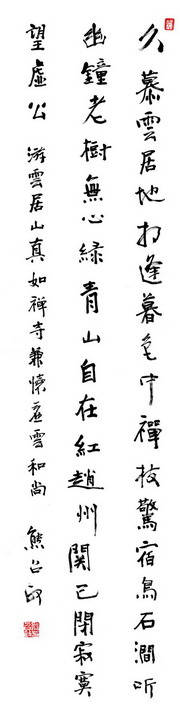 久慕雲居地相逢暮色中禪枝驚宿鳥石澗听
幽鐘老樹無心緑青山自在紅趙州関已閉寂寞
望虛公 游雲居山真如禅寺兼懷虛雲和尚 熊召政